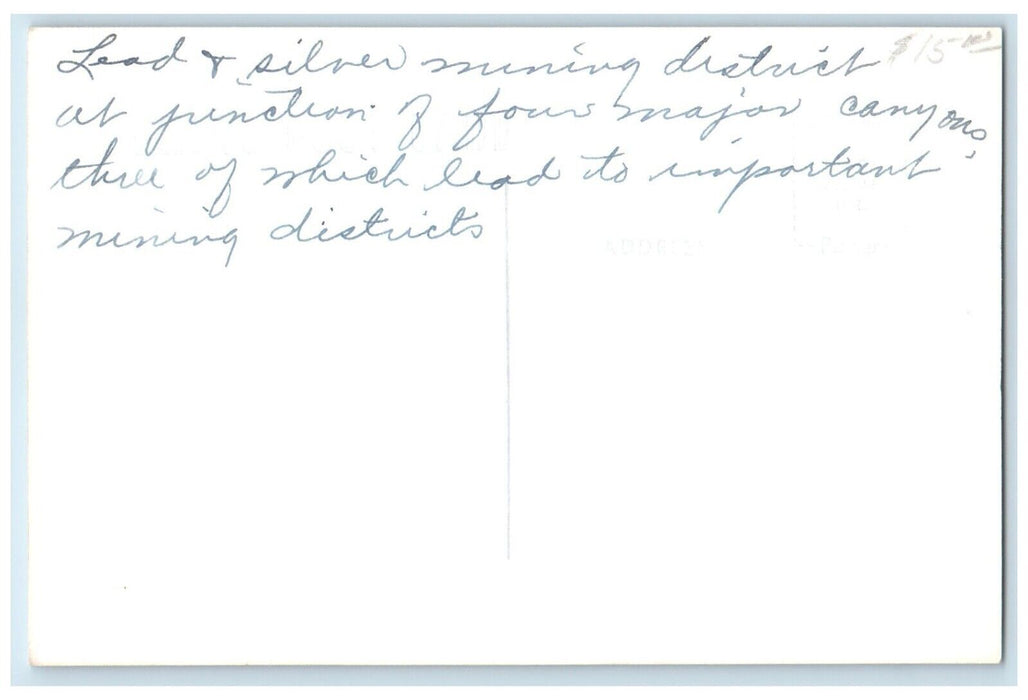 Lead & silver mining district $15.00
at junction of four major canyons,
three of which lead to important
mining districts
ADDRESS